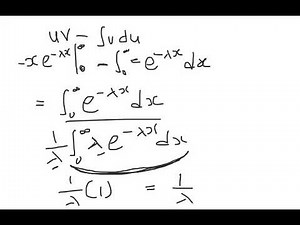 uv − ∫vdu
-xe^{-λx}|_0^∞ − ∫_0^∞ -e^{-λx} dx
= ∫_0^∞ e^{-λx} dx
1/λ ∫_0^∞ λe^{-λx} dx
1/λ (1) = 1/λ